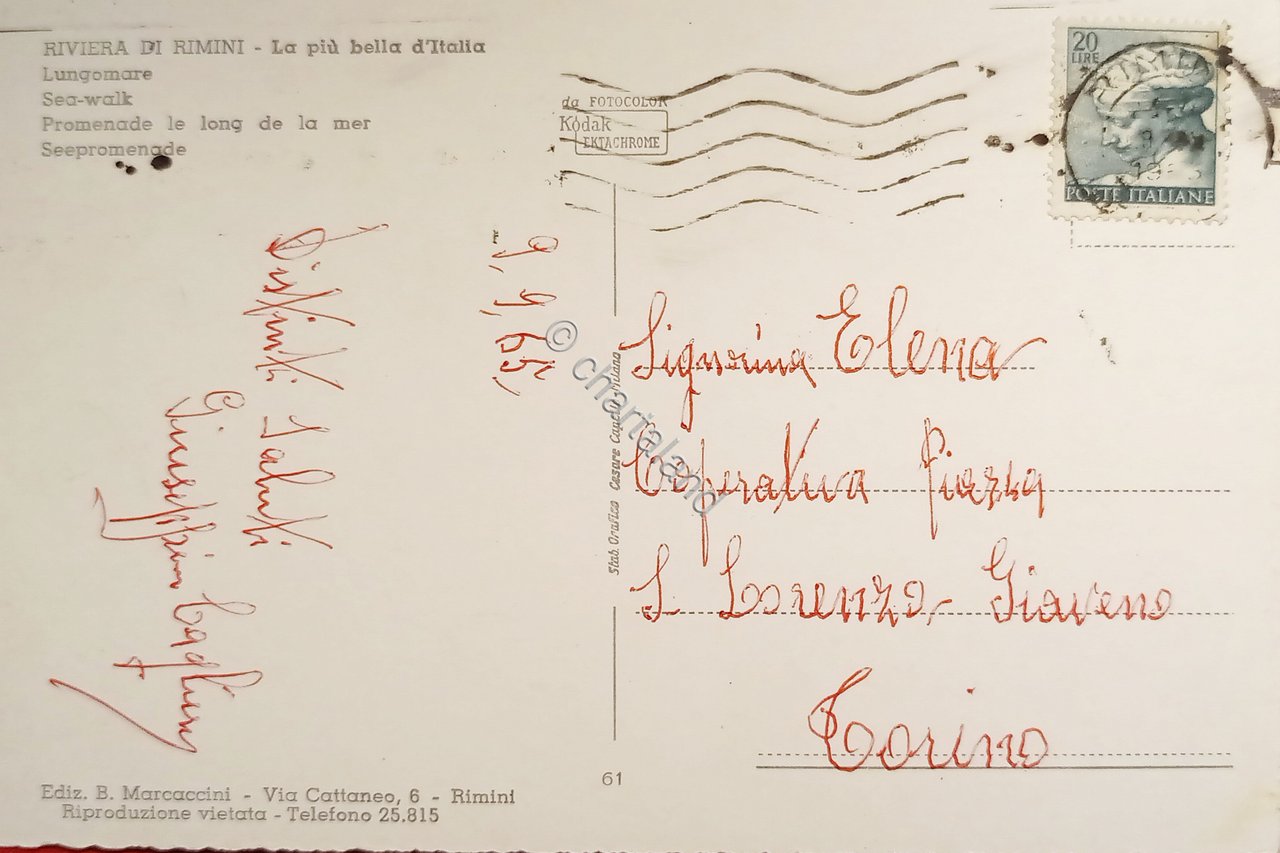 RIVIERA DI RIMINI - La più bella d'Italia
Lungomare
Sea-walk
Promenade le long de la mer
Seepromenade
da FOTOCOLOR
Kodak
EKTACHROME
20
LIRE
POSTE ITALIANE
9, 9, 65,
Distinti Saluti
Giuseppina
Signorina Elena
Cooperativa Piazza
S. Lorenzo, Giaveno
Torino
Stab. Grafico Cesare Capello Milano
© chartaland
61
Ediz. B. Marcaccini - Via Cattaneo, 6 - Rimini
Riproduzione vietata - Telefono 25.815